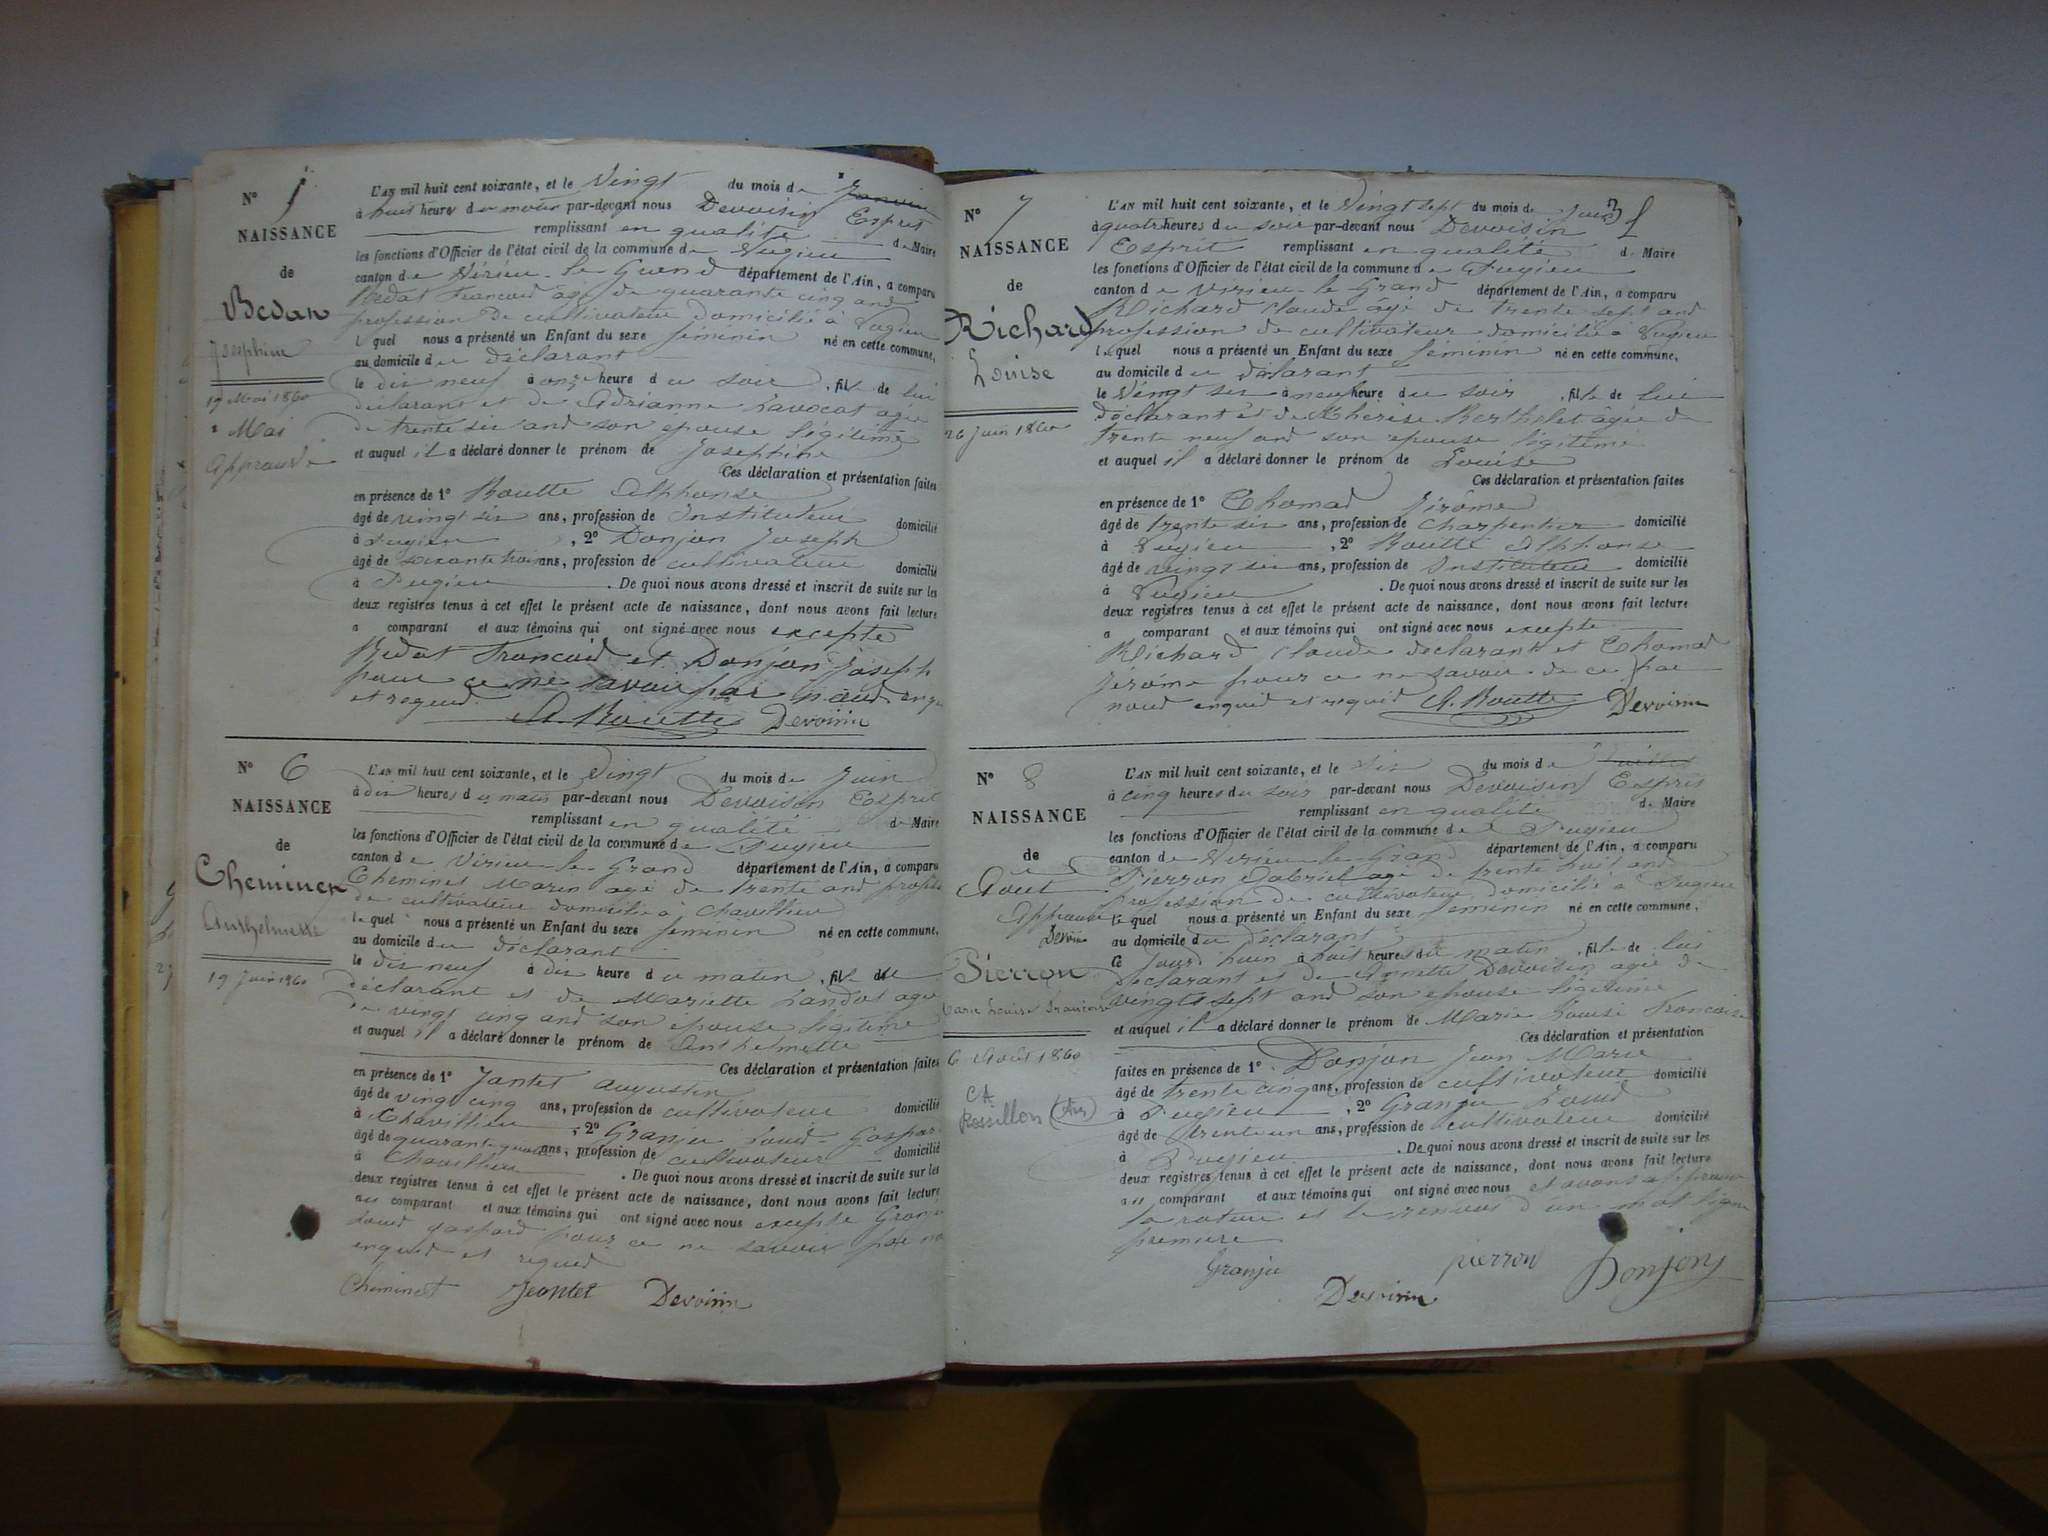 N° 5
NAISSANCE
de
Bedat
Joséphine
19 Mai 1860
Mai
Approuvé
L'AN mil huit cent soixante, et le Vingt du mois de Janvier
à huit heures du matin par-devant nous Devoisin Esprit
remplissant en qualité de Maire
les fonctions d'Officier de l'état civil de la commune de Pugieu
canton de Virieu-le-Grand département de l'Ain, a comparu
Bedat Francois âgé de quarante cinq ans
profession de cultivateur domicilié à Pugieu
lequel nous a présenté un Enfant du sexe féminin né en cette commune,
au domicile du déclarant
le dix neuf à onze heure du soir, fille de lui
déclarant et de Adrianne Lavocat agée
de trente six ans son épouse légitime
et auquel il a déclaré donner le prénom de Joséphine
Ces déclaration et présentation faites
en présence de 1° Boutte Alphonse
âgé de vingt six ans, profession de Instituteur domicilié
à Pugieu, 2° Donjon Joseph
âgé de soixante trois ans, profession de cultivateur domicilié
à Pugieu. De quoi nous avons dressé et inscrit de suite sur les
deux registres tenus à cet effet le présent acte de naissance, dont nous avons fait lecture
a comparant et aux témoins qui ont signé avec nous excepté
Bedat Francois et Donjon Joseph
pour ce ne savoir par nous enqu
et requis
A. Boutte Devoisin
N° 6
NAISSANCE
de
Cheminet
Anthelmette
19 Juin 1860
L'AN mil huit cent soixante, et le Vingt du mois de Juin
à dix heures du matin par-devant nous Devoisin Esprit
remplissant en qualité de Maire
les fonctions d'Officier de l'état civil de la commune de Pugieu
canton de Virieu-le-Grand département de l'Ain, a comparu
Cheminet Marin agé de trente ans profess
de cultivateur domicilié à Chavillieu
lequel nous a présenté un Enfant du sexe féminin né en cette commune,
au domicile du déclarant
le dix neuf à dix heure du matin, fille de
déclarant et de Mariette Landot agée
de vingt cinq ans son épouse légitime
et auquel il a déclaré donner le prénom de Anthelmette
Ces déclaration et présentation faites
en présence de 1° Jantet Augustin
âgé de vingt cinq ans, profession de cultivateur domicilié
à Chavillieu, 2° Granju Louis-Gaspar
âgé de quarante quatre ans, profession de cultivateur domicilié
à Chavillieu. De quoi nous avons dressé et inscrit de suite sur les
deux registres tenus à cet effet le présent acte de naissance, dont nous avons fait lecture
au comparant et aux témoins qui ont signé avec nous excepté Granju
Louis gaspard pour ce ne savoir par no
enquis et requis
Cheminet Jeantet Devoisin
N° 7
NAISSANCE
de
Richard
Louise
26 Juin 1860
3
L'AN mil huit cent soixante, et le Vingt sept du mois de Juin
à quatre heures du soir par-devant nous Devoisin
Esprit remplissant en qualité de Maire
les fonctions d'Officier de l'état civil de la commune de Pugieu
canton de Virieu-le-Grand département de l'Ain, a comparu
Richard Claude âgé de trente sept ans
profession de cultivateur domicilié à Pugieu
lequel nous a présenté un Enfant du sexe féminin né en cette commune,
au domicile du déclarant
le Vingt six à neuf heure du soir, fille de lui
déclarant et de Thérèse Berthelet âgée de
trente neuf ans son épouse légitime
et auquel il a déclaré donner le prénom de Louise
Ces déclaration et présentation faites
en présence de 1° Thomas Jérôme
âgé de trente six ans, profession de Charpentier domicilié
à Pugieu, 2° Boutte Alphonse
âgé de vingt six ans, profession de Instituteur domicilié
à Pugieu. De quoi nous avons dressé et inscrit de suite sur les
deux registres tenus à cet effet le présent acte de naissance, dont nous avons fait lecture
a comparant et aux témoins qui ont signé avec nous excepté
Richard Claude déclarant et Thomas
Jérôme pour ce ne savoir de ce par
nous enquis et requis A. Boutte Devoisin
N° 8
NAISSANCE
de
Aout
Approuvé
Devoisin
Pierron
Marie Louise Francoise
6 Août 1860
CA
Rossillon (Ain)
L'AN mil huit cent soixante, et le six du mois de Juillet
à cinq heures du soir par-devant nous Devoisin Esprit
remplissant en qualité de Maire
les fonctions d'Officier de l'état civil de la commune de Pugieu
canton de Virieu-le-Grand département de l'Ain, a comparu
Pierron Gabriel agé de trente huit ans
profession de cultivateur domicilié à Pugieu
lequel nous a présenté un Enfant du sexe féminin né en cette commune,
au domicile du déclarant
le Jourd'huin à huit heures du matin, fille de lui
déclarant et de Annette Devoisin agée de
vingt sept ans son épouse légitime
et auquel il a déclaré donner le prénom de Marie Louise Francoise
Ces déclaration et présentation
faites en présence de 1° Donjon Jean Marie
âgé de trente cinq ans, profession de cultivateur domicilié
à Pugieu, 2° Granju Louis
âgé de trente un ans, profession de cultivateur domicilié
à Pugieu. De quoi nous avons dressé et inscrit de suite sur les
deux registres tenus à cet effet le présent acte de naissance, dont nous avons fait lecture
au comparant et aux témoins qui ont signé avec nous et avons approuvé
la rature et le renvoi d'un mot ligne
premiere
Granju pierron Donjon
Devoisin